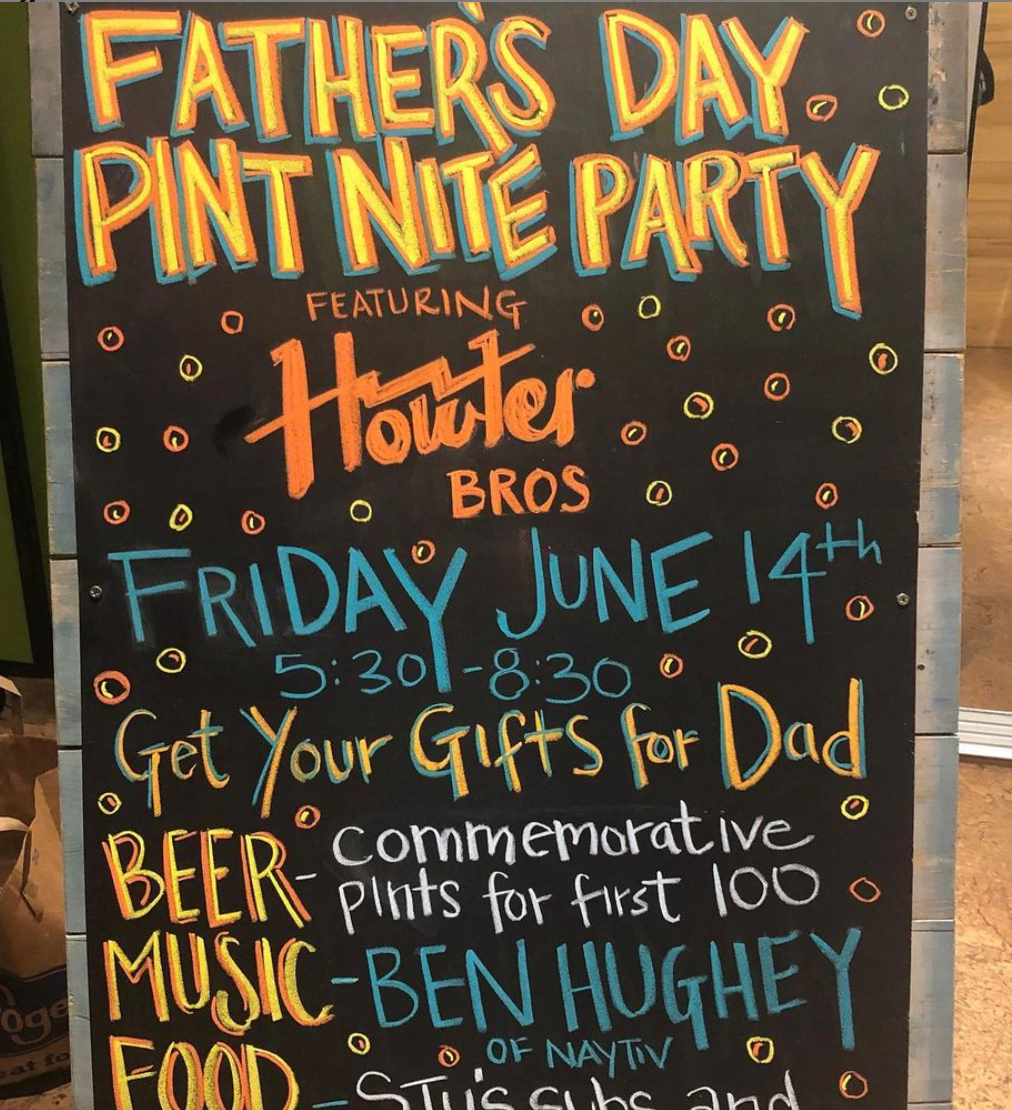 FATHER'S DAY
PINT NITE PARTY
FEATURING
Howler
BROS
FRIDAY JUNE 14th
5:30-8:30
Get Your Gifts for Dad
BEER- commemorative
pints for first 100
MUSIC-BEN HUGHEY
OF NAYTIV
FOOD-STu's subs and